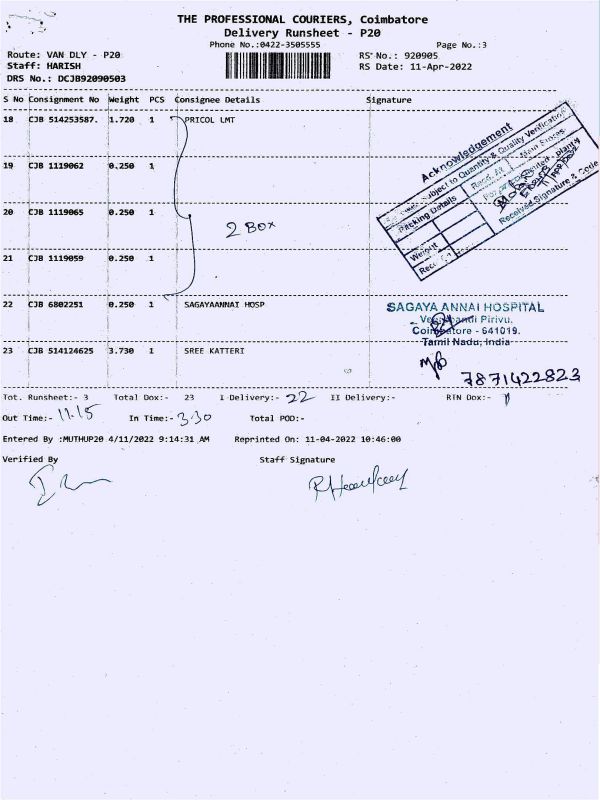 THE PROFESSIONAL COURIERS, Coimbatore
Delivery Runsheet - P20
Phone No.:0422-3505555
Page No.:3
Route: VAN DLY - P20
RS No.: 920905
Staff: HARISH
RS Date: 11-Apr-2022
DRS No.: DCJB92090503
S No Consignment No Weight PCS Consignee Details Signature
18 CJB 514253587. 1.720 1 PRICOL LMT
Acknowledgement
Subject to Quantity & Quality Verification
Packing Details
Weight
Received Signature & Code
19 CJB 1119062 0.250 1
20 CJB 1119065 0.250 1
2 BOX
21 CJB 1119059 0.250 1
22 CJB 6802251 0.250 1 SAGAYAANNAI HOSP
SAGAYA ANNAI HOSPITAL
Pirivu,
Coimbatore - 641019.
Tamil Nadu, India
23 CJB 514124625 3.730 1 SREE KATTERI
7871422823
Tot. Runsheet:- 3 Total Dox:- 23 I Delivery:- 22 II Delivery:- RTN Dox:- 1
Out Time:- 11.15 In Time:- 3.30 Total POD:-
Entered By :MUTHUP20 4/11/2022 9:14:31 AM Reprinted On: 11-04-2022 10:46:00
Verified By Staff Signature